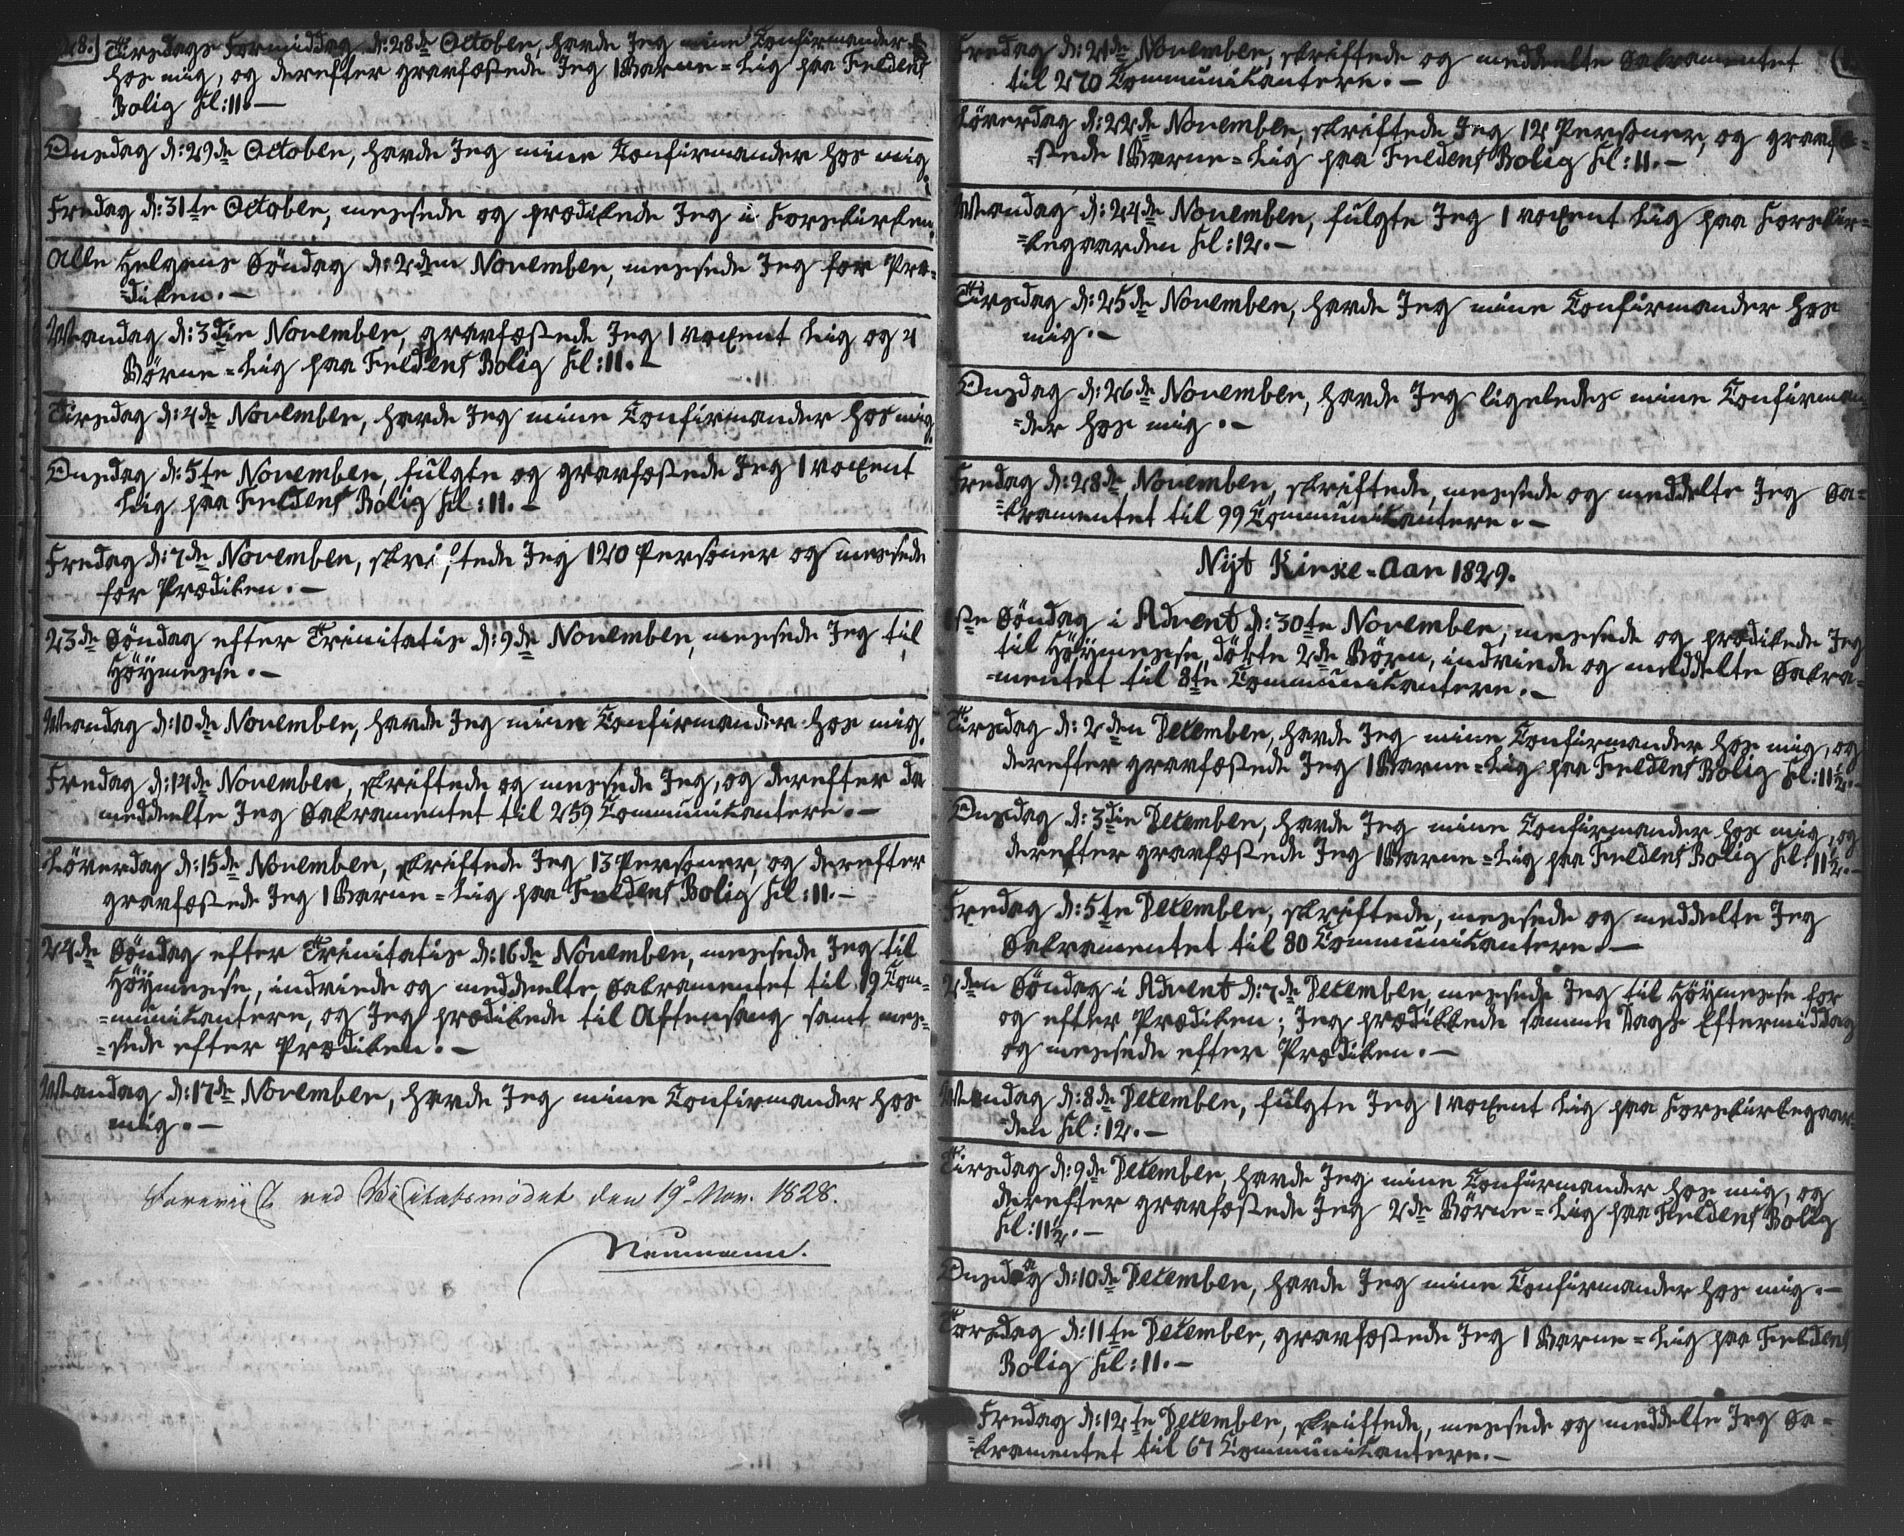 Tirsdags Formiddag d: 28de October, havde Jeg mine Confirmander
hos mig, og derefter gravfæstede Jeg 1 Barne=Liig paa Freldens
Bolig kl: 11.-
Onsdag d: 29de October, havde Jeg mine Confirmander hos mig.
Fredag d: 31te October, messede og prædikede Jeg i Korskirken.
Alle Helgens Söndag d: 2den November, messede Jeg for Præ=
=diken.-
Mandag d: 3die November, gravfæstede Jeg 1 voxent Liig og 4
Börne=Liig paa Freldens Bolig kl: 11.-
Tirsdag d: 4de November, havde Jeg mine Confirmander hos mig.
Onsdag d: 5te November, fulgte og gravfæstede Jeg 1 voxent
Liig paa Freldens Bolig kl: 11.-
Fredag d: 7de November, skriftede Jeg 120 Personer og messede
for Prædiken.-
23de Söndag efter Trinitatis d: 9de November, messede Jeg til
Höÿmesse.-
Mandag d: 10de November, havde Jeg mine Confirmander hos mig.
Fredag d: 14de November, skriftede og messede Jeg, og derefter da
meddeelte Jeg Sakramentet til 259 Communikantere.-
Löverdag d: 15de November, skriftede Jeg 13 Personer, og derefter
gravfæstede Jeg 1 Barne=Liig paa Freldens Bolig kl: 11.-
24de Söndag efter Trinitatis d: 16de November, messede Jeg til
Höÿmesse, indviede og meddeelte Sakramentet til 19 Com=
=munikantere, og Jeg prædikede til Aftensang samt mes=
=sede efter Prædiken.-
Mandag d: 17de November, havde Jeg mine Confirmander hos
mig.-
Foreviist ved Visitatsmödet den 19de Nov. 1828.
Neumann.
Fredag d: 21de November, skriftede og meddeelte Sakramentet
til 270 Communikantere.-
Löverdag d: 22de November, skriftede Jeg 12 Personer, og gravfæ=
=stede 1 Barne=Liig paa Freldens Bolig kl: 11.-
Mandag d: 24de November, fulgte Jeg 1 voxent Liig paa Korskir=
=kegaarden kl: 12.-
Tirsdag d: 25de November, havde Jeg mine Confirmander hos
mig.-
Onsdag d: 26de November, havde Jeg ligeledes mine Confirman=
=der hos mig.-
Fredag d: 28de November, skriftede, messede og meddelte Jeg Sa=
=kramentet til 99 Communikantere.-
Nÿt Kirke-Aar 1829.
1ste Söndag i Advent d: 30te November, messede og prædikede Jeg
til Höÿmesse, döbte 2de Börn, indviede og meddelte Sakra=
=mentet til 8te Communikantere.-
Tirsdag d: 2den December, havde Jeg mine Confirmander hos mig, og
derefter gravfæstede Jeg 1 Barne=Liig paa Freldens Bolig kl: 11½.-
Onsdag d: 3die December, havde Jeg mine Confirmander hos mig, og
derefter gravfæstede Jeg 1 Barne=Liig paa Freldens Bolig kl: 11½.-
Fredag d: 5te December, skriftede, messede og meddelte Jeg
Sakramentet til 80 Communikantere.-
2den Söndag i Advent d: 7de December, messede Jeg til Höÿmesse for
og efter Prædiken; Jeg prædikede samme Dags Eftermiddag
og messede efter Prædiken.-
Mandag d: 8de December, fulgte Jeg 1 voxent Liig paa Korskirkegaar=
den kl: 12.-
Tirsdag d: 9de December, havde Jeg mine Confirmander hos mig, og
derefter gravfæstede Jeg 2de Börne=Liig paa Freldens Bolig
kl: 11½.-
Onsdag d: 10de December, havde Jeg mine Confirmander hos mig.-
Torsdag d: 11te December, gravfæstede Jeg 1 Barne=Liig paa Freldens
Bolig kl: 11.-
Fredag d: 12te December, skriftede, messede og meddelte Jeg Sa=
=kramentet til 67 Communikantere.-